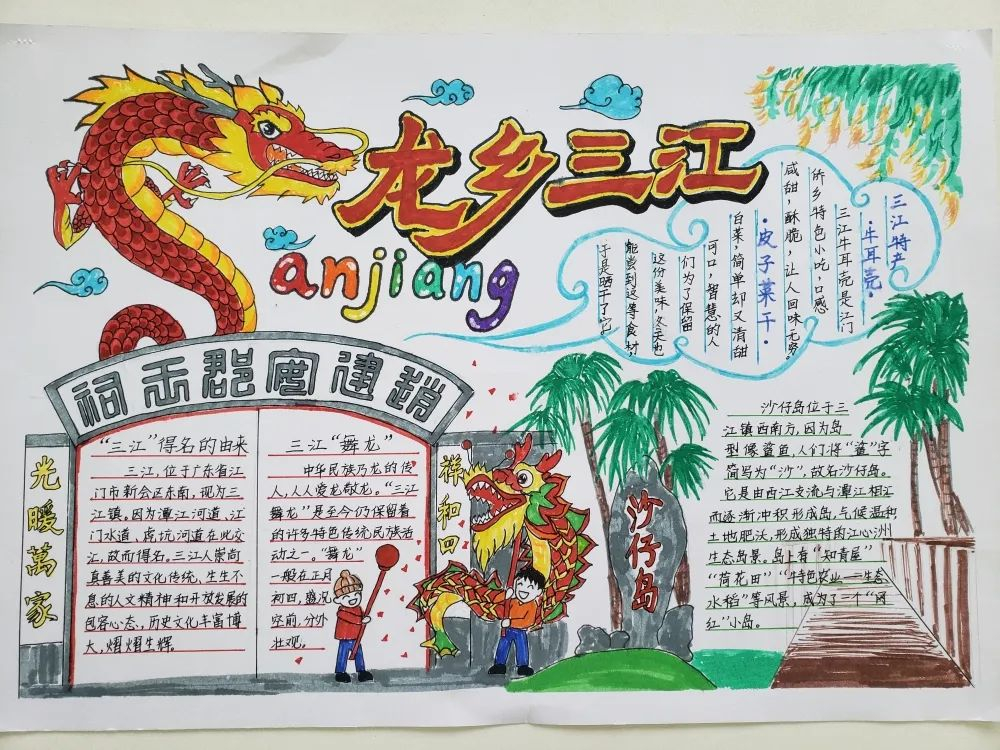 龙乡三江
Sanjiang
三江特产
·牛耳壳·
三江牛耳壳是江门
侨乡特色小吃，口感
咸甜，酥脆，让人回味无穷。
·皮子菜干·
白菜，简单却又清甜
可口，智慧的人
们为了保留
这份美味，冬天也
能尝到这等食材，
于是晒干了它。
趙建安郡王祠
祥和四
光暖萬家
“三江”得名的由来
三江，位于广东省江
门市新会区东南，现为三
江镇，因为潭江河道、江
门水道、虎坑河道在此交
汇，故而得名。三江人崇尚
真善美的文化传统，生生不
息的人文精神和开放发展的
包容心态，历史文化丰富博
大，熠熠生辉。
三江“舞龙”
中华民族乃龙的传
人，人人爱龙敬龙。“三江
舞龙”是至今仍保留着
的许多特色传统民族活
动之一。“舞龙”
一般在正月
初四，盛况
空前，分外
壮观。
沙仔岛
沙仔岛位于三
江镇西南方，因为岛
型像鲨鱼，人们将“鲨”字
简写为“沙”，故名沙仔岛。
它是由西江支流与潭江相汇
而逐渐冲积形成岛，气候温和
土地肥沃，形成独特的江心洲
生态岛景。岛上有“知青屋”
“荷花田”“特色农业——生态
水稻”等风景，成为了一个“网
红”小岛。